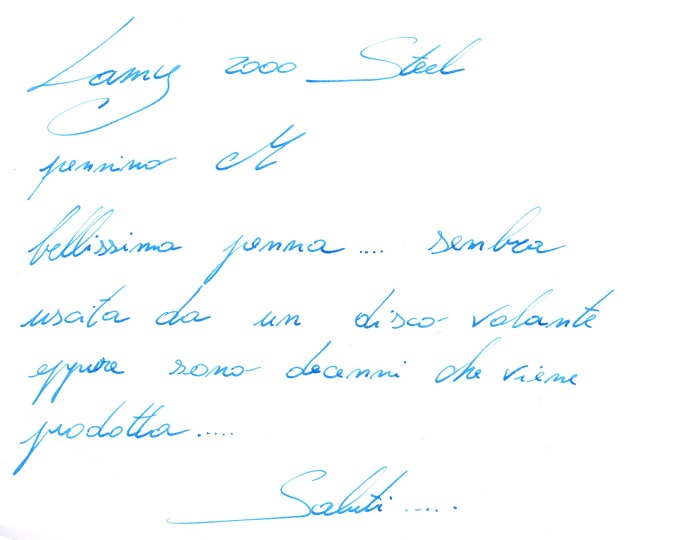 Lamy 2000 Steel
pennino M
bellissima penna .... sembra
uscita da un disco volante
eppure sono decenni che viene
prodotta .....
Saluti .....